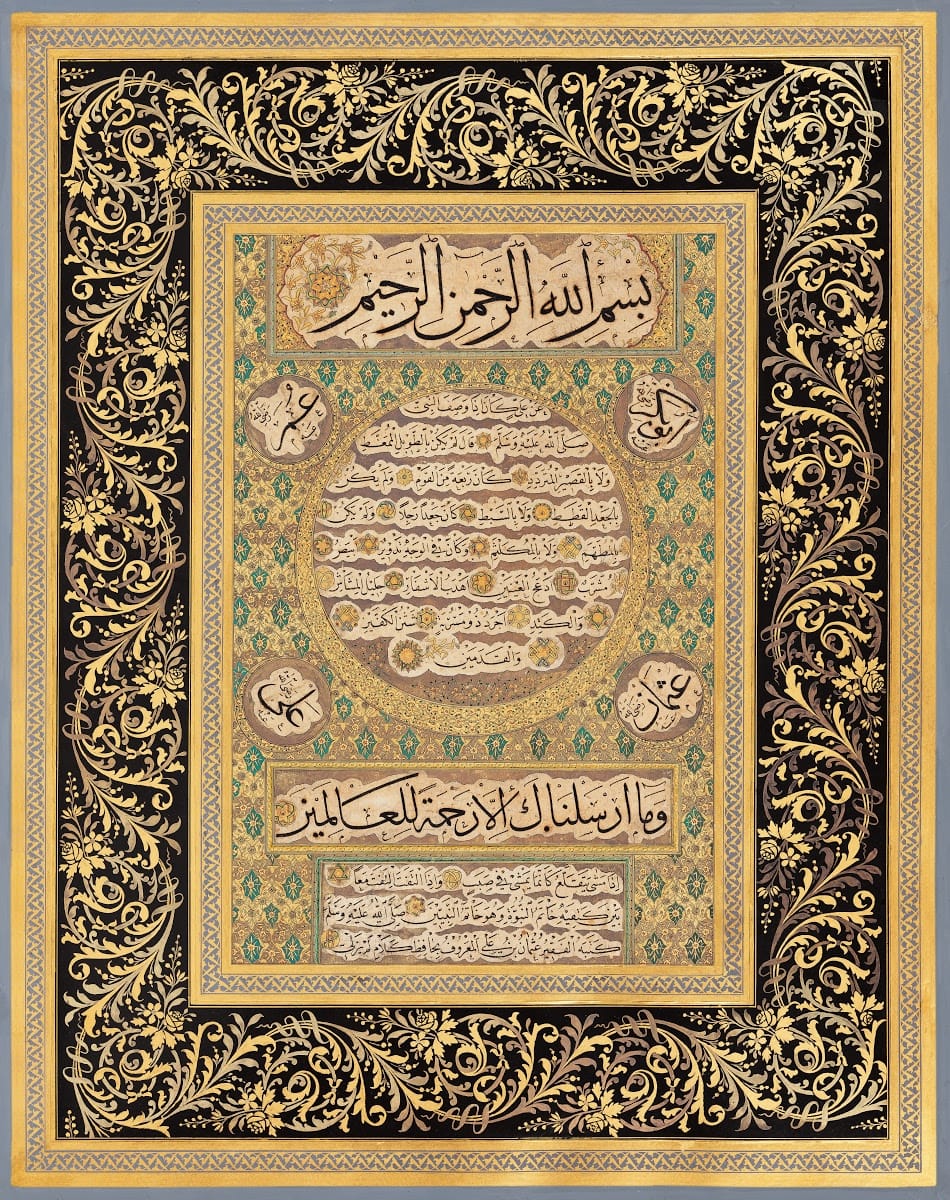 بسم الله الرحمن الرحيم
ابوبكر رضي الله عنه
عمر رضي الله عنه
عن علي كان اذا وصف النبي
صلى الله عليه وسلم قال لم يكن بالطويل الممغط
ولا بالقصير المتردد كان ربعة من القوم ولم يكن
بالجعد القطط ولا بالسبط كان جعدا رجلا ولم يكن
بالمطهم ولا بالمكلثم وكان في الوجه تدوير ابيض
مشرب ادعج العينين اهدب الاشفار جليل المشاش
والكتد اجرد ذو مسربة شثن الكفين
والقدمين
عثمان رضي الله عنه
علي رضي الله عنه
وما ارسلناك الا رحمة للعالمين
اذا مشى يتقلع كانما يمشي في صبب واذا التفت التفت معا
بين كتفيه خاتم النبوة وهو خاتم النبيين صلى الله عليه وسلم
كتبه الفقير عثمان بن علي المعروف بحافظ القرآن